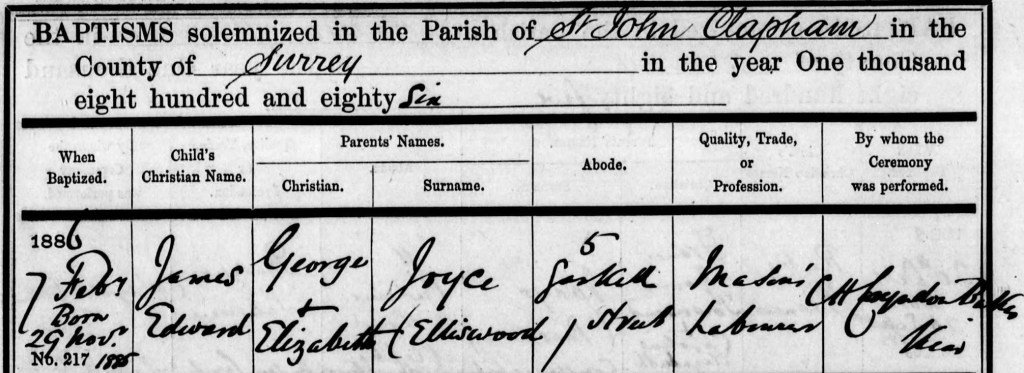 BAPTISMS solemnized in the Parish of St John Clapham in the
County of Surrey in the year One thousand
eight hundred and eighty Six
When Baptized.
Child's Christian Name.
Parents' Names.
Christian.
Surname.
Abode.
Quality, Trade, or Profession.
By whom the Ceremony was performed.
1886
7 Febr
Born
29 Nov.
1885
No. 217
James
Edward
George
+
Elizabeth
Joyce
(Elliswood)
5
Gaskell
Street
Mason's
Labourer
CH